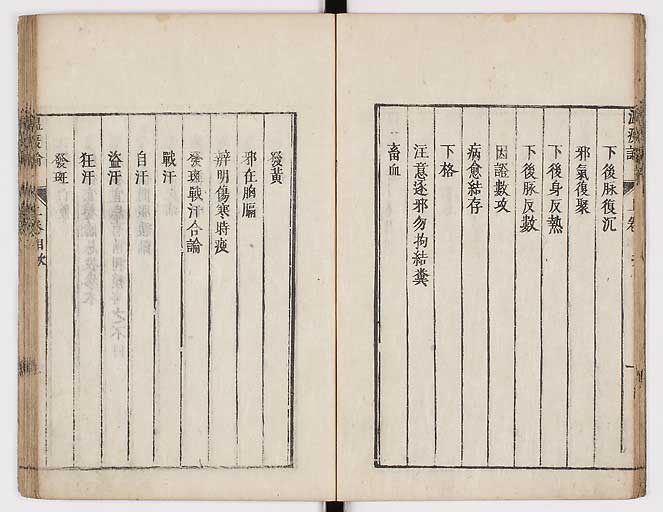 下後脉復沉
邪氣復聚
下後身反熱
下後脉反數
因證數攻
病愈結存
下格
注意逐邪勿拘結糞
畜血
發黃
邪在胸膈
辨明傷寒時疫
發斑戰汗合論
戰汗
自汗
盜汗
狂汗
發斑